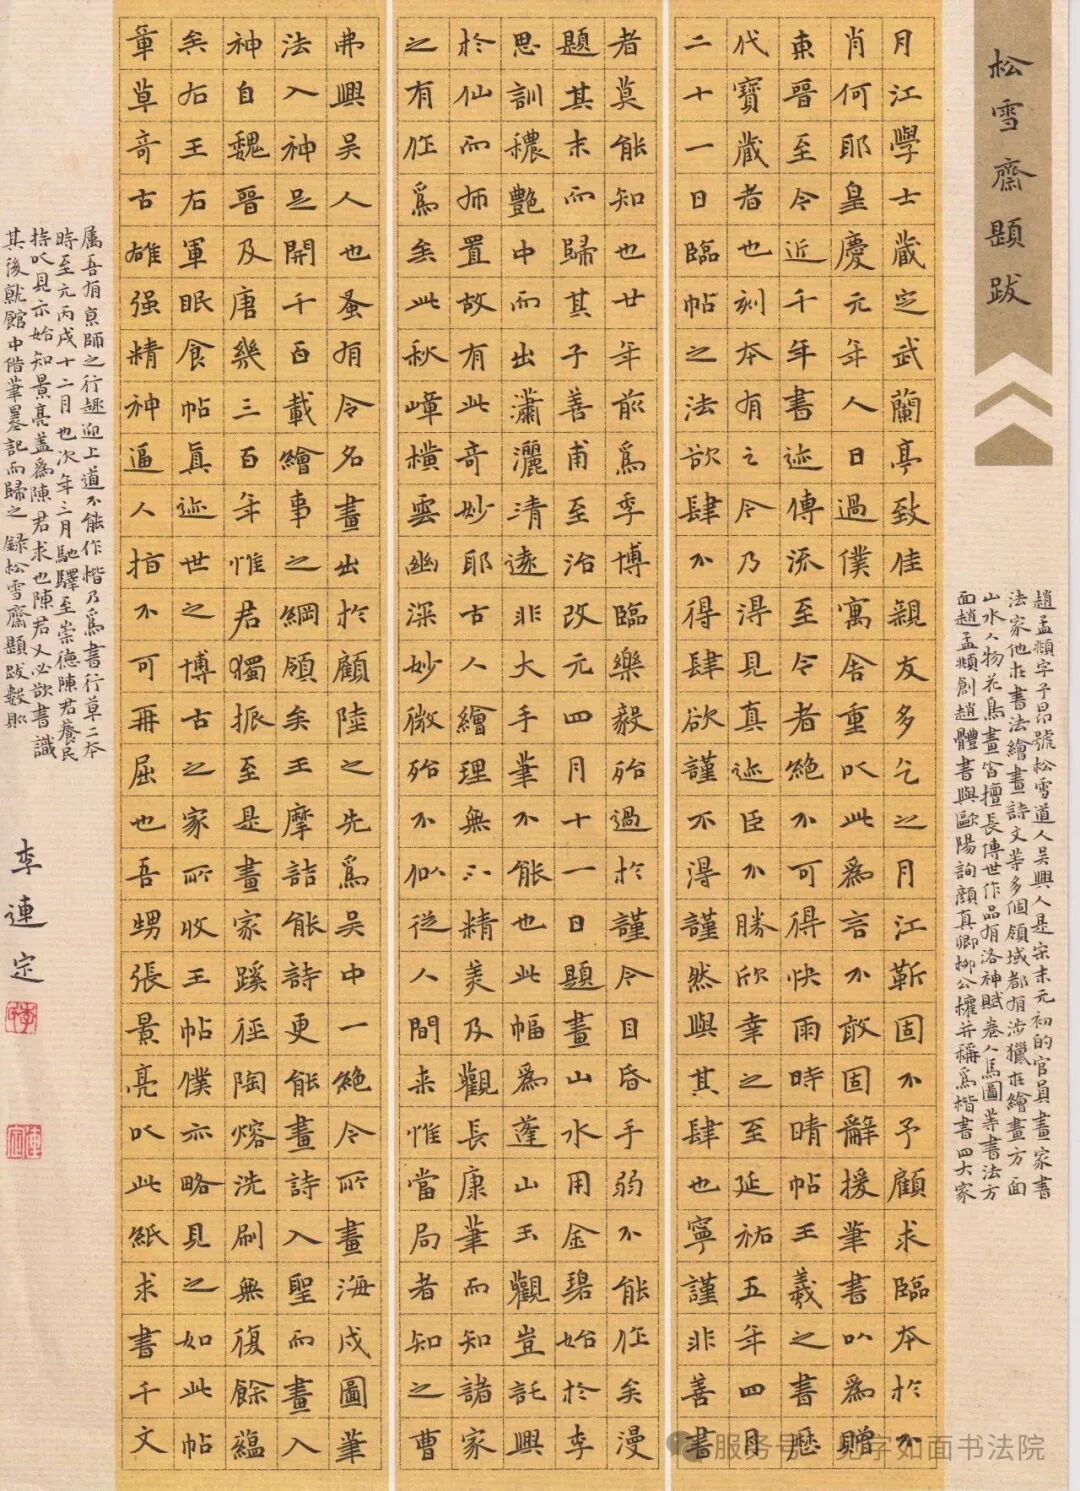 松雪齋題跋
趙孟頫字子昂號松雪道人吳興人是宋末元初的官員畫家書
法家他在書法繪畫詩文等多個領域都有涉獵在繪畫方面
山水人物花鳥畫皆擅長傳世作品有洛神賦卷人馬圖等書法方
面趙孟頫創趙體書與歐陽詢顏真卿柳公權并稱爲楷書四大家
月江學士藏定武蘭亭致佳親友多乞之月江靳固不予顧求臨本於不
肖何耶皇慶元年人日過僕寓舍重以此爲言不敢固辭援筆書以爲贈
東晉至今近千年書迹傳流至今者絶不可得快雨時晴帖王羲之書歷
代寶藏者也刻本有之今乃得見真迹臣不勝欣幸之至延祐五年四月
二十一日臨帖之法欲肆不得肆欲謹不得謹然與其肆也寧謹非善書
者莫能知也廿年前爲季博臨樂毅殆過於謹今目昏手弱不能作矣漫
題其末而歸其子善甫至治改元四月十一日題畫山水用金碧始於李
思訓穠艷中而出瀟灑清遠非大手筆不能也此幅爲蓬山玉觀豈託興
於仙而師置故有此奇妙耶古人繪理無不精美及觀長康筆而知諸家
之有作爲矣此秋嶂橫雲幽深妙微殆不似從人間来惟當局者知之曹
弗興吳人也蚤有令名畫出於顧陸之先爲吳中一絶今所畫海戍圖筆
法入神足開千百載繪事之綱領矣王摩詰能詩更能畫詩入聖而畫入
神自魏晉及唐幾三百年惟君獨振至是畫家蹊徑陶熔洗刷無復餘蘊
矣右王右軍眠食帖真迹世之博古之家所收王帖僕亦略見之如此帖
章草奇古雄强精神逼人指不可再屈也吾甥張景亮以此紙求書千文
属吾有京師之行趣迎上道不能作楷乃爲書行草二本
時至元丙戌十二月也次年三月馳驛至崇德陳君養民
持以見示始知景亮蓋爲陳君求也陳君又必欲書識
其後就館中階筆墨記而歸之 錄松雪齋題跋數則
李連定
服务号 · 见字如面书法院